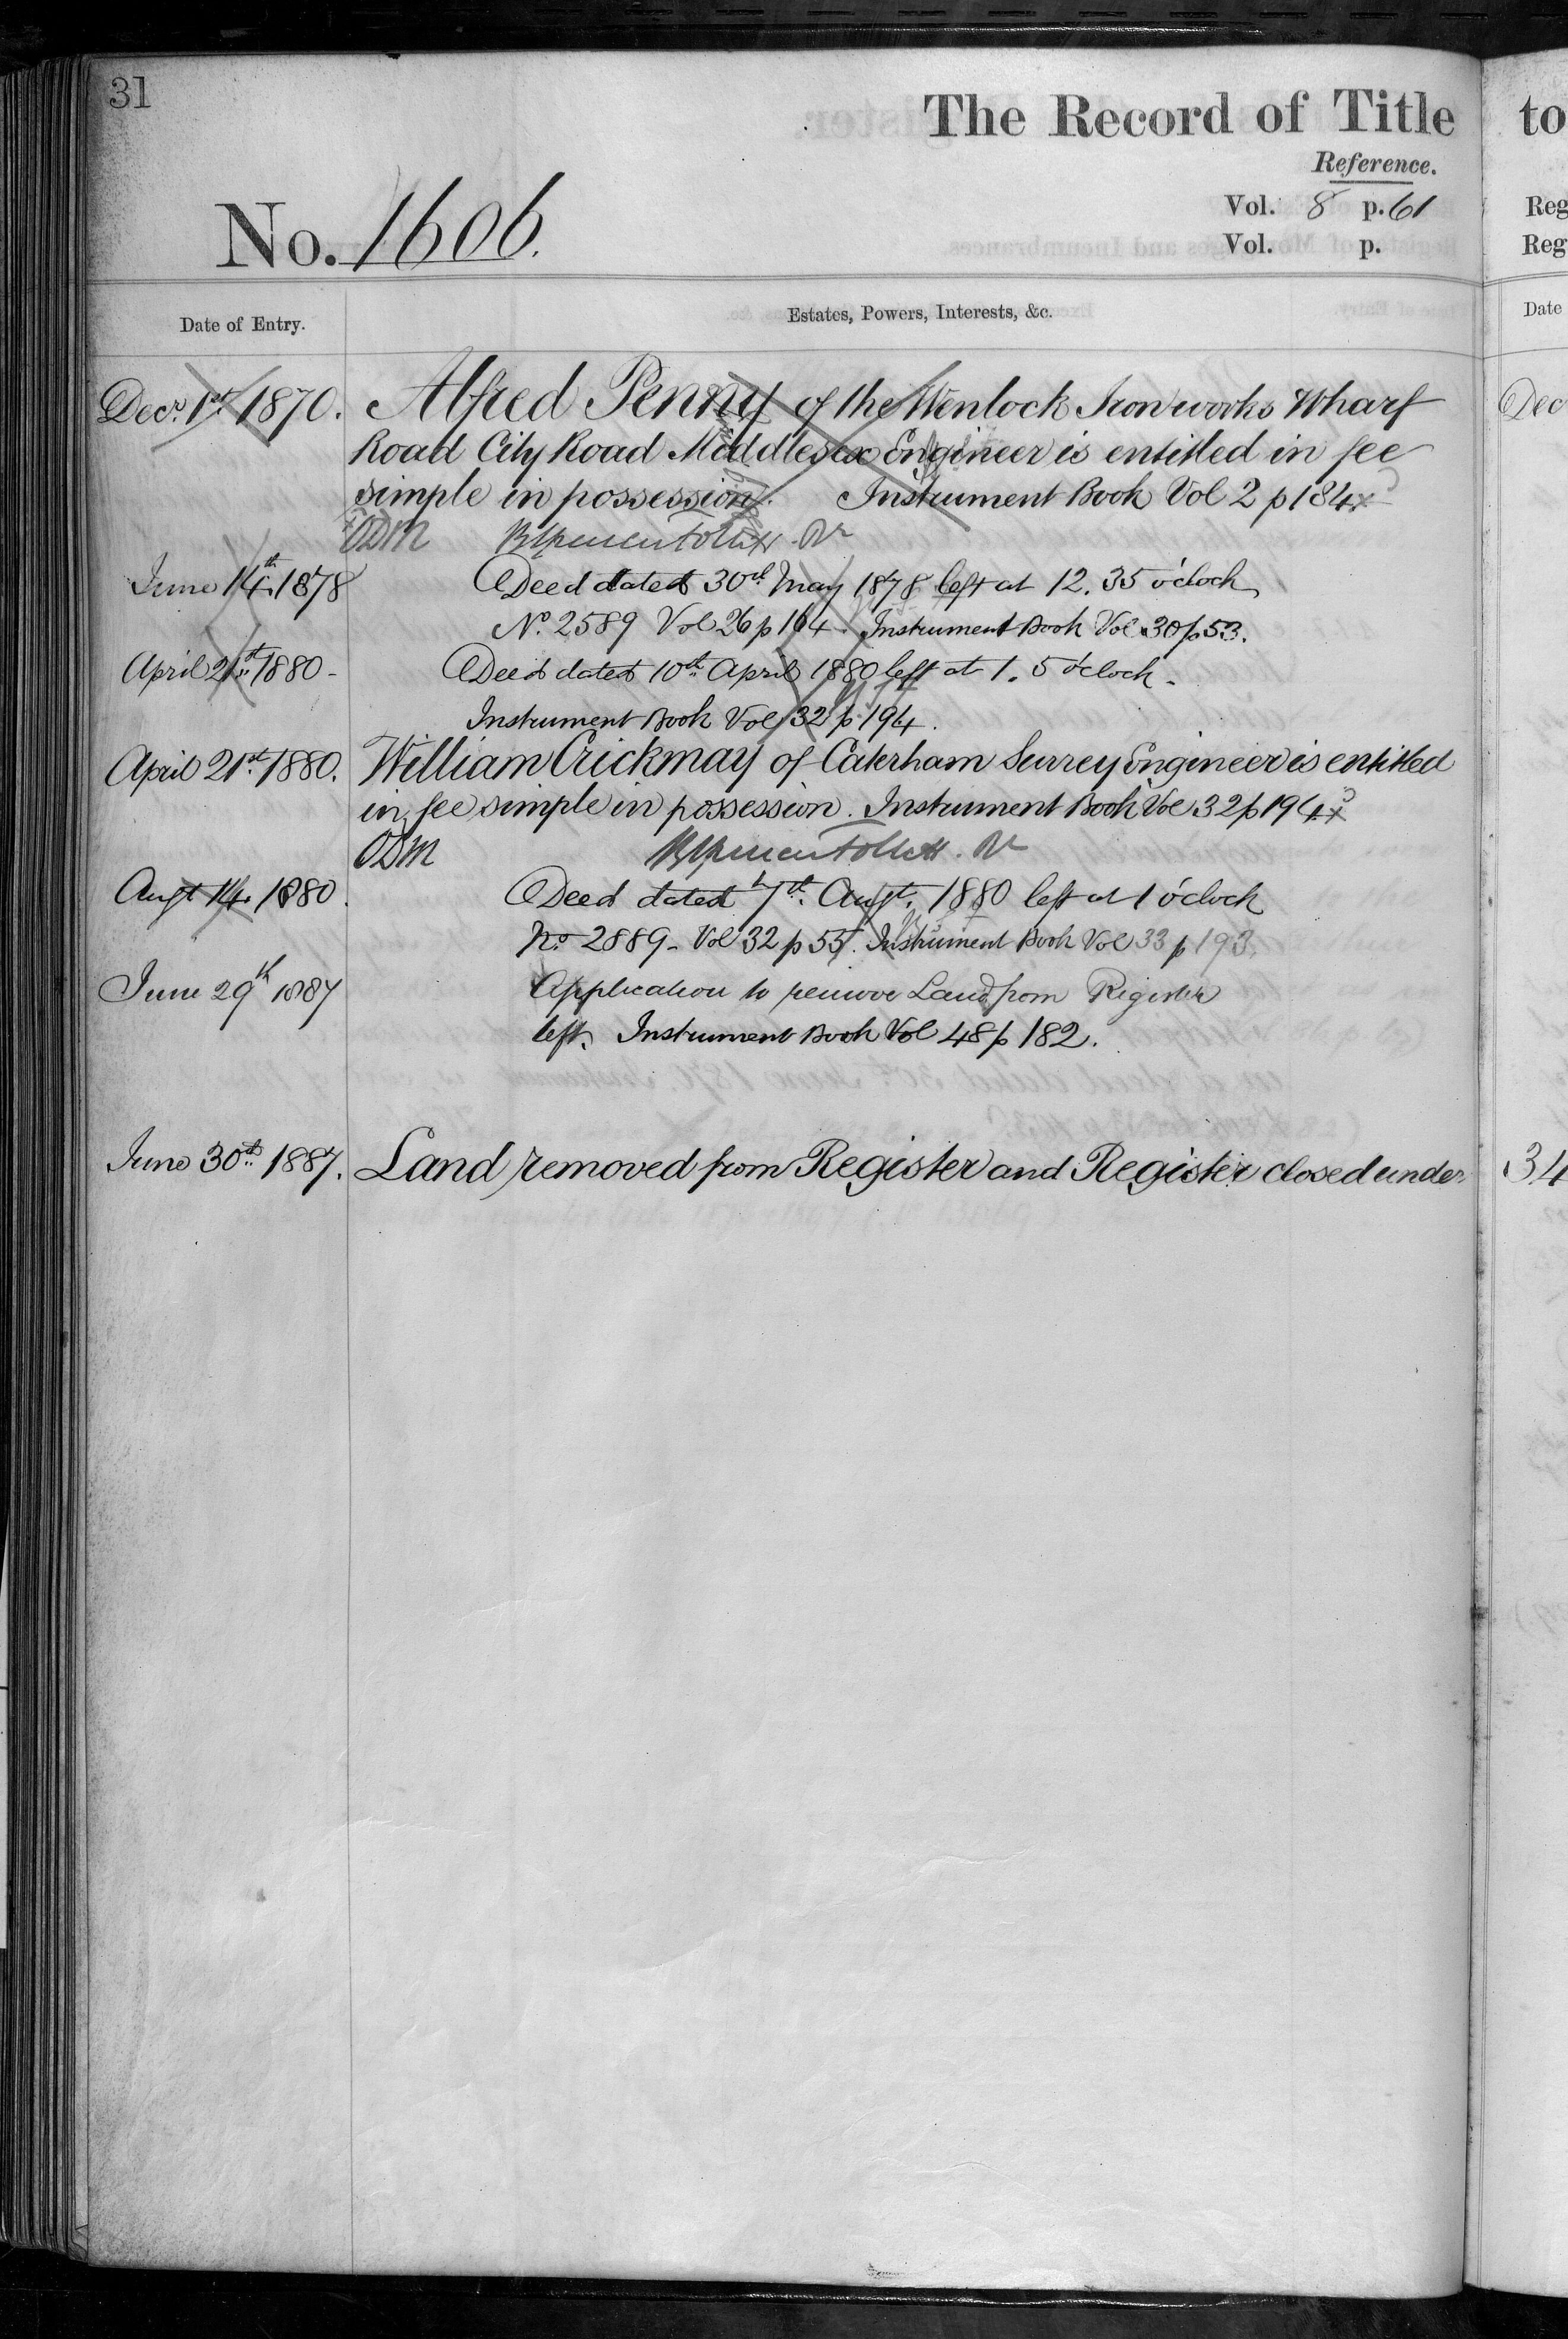 31
The Record of Title
Reference.
Vol. 8 p. 61
Vol. p.
No. 1606.
Date of Entry.
Estates, Powers, Interests, &c.
Decr. 1st 1870. Alfred Penny of the Wenlock Iron works Wharf
Road City Road Middlesex Engineer is entitled in fee
simple in possession. Instrument Book Vol 2 p 184
ODM
June 14th 1878 Deed dated 30th May 1878 left at 12.35 o'clock
No. 2589 Vol 26 p 164. Instrument Book Vol 30 p 53.
April 21st 1880 - Deed dated 10th April 1880 left at 1.5 o'clock -
Instrument Book Vol 32 p 194.
April 21st 1880. William Crickmay of Caterham Surrey Engineer is entitled
in fee simple in possession. Instrument Book Vol 32 p 194
ODM
Augt 14. 1880. Deed dated 7th. Augt. 1880 left at 1 o'clock
No 2889 - Vol 32 p 55. Instrument Book Vol 33 p 193.
June 29th 1887 Application to remove Land from Register
left. Instrument Book Vol 48 p 182.
June 30th 1887. Land removed from Register and Register closed under
to
Reg
Reg
Date
Dec
34